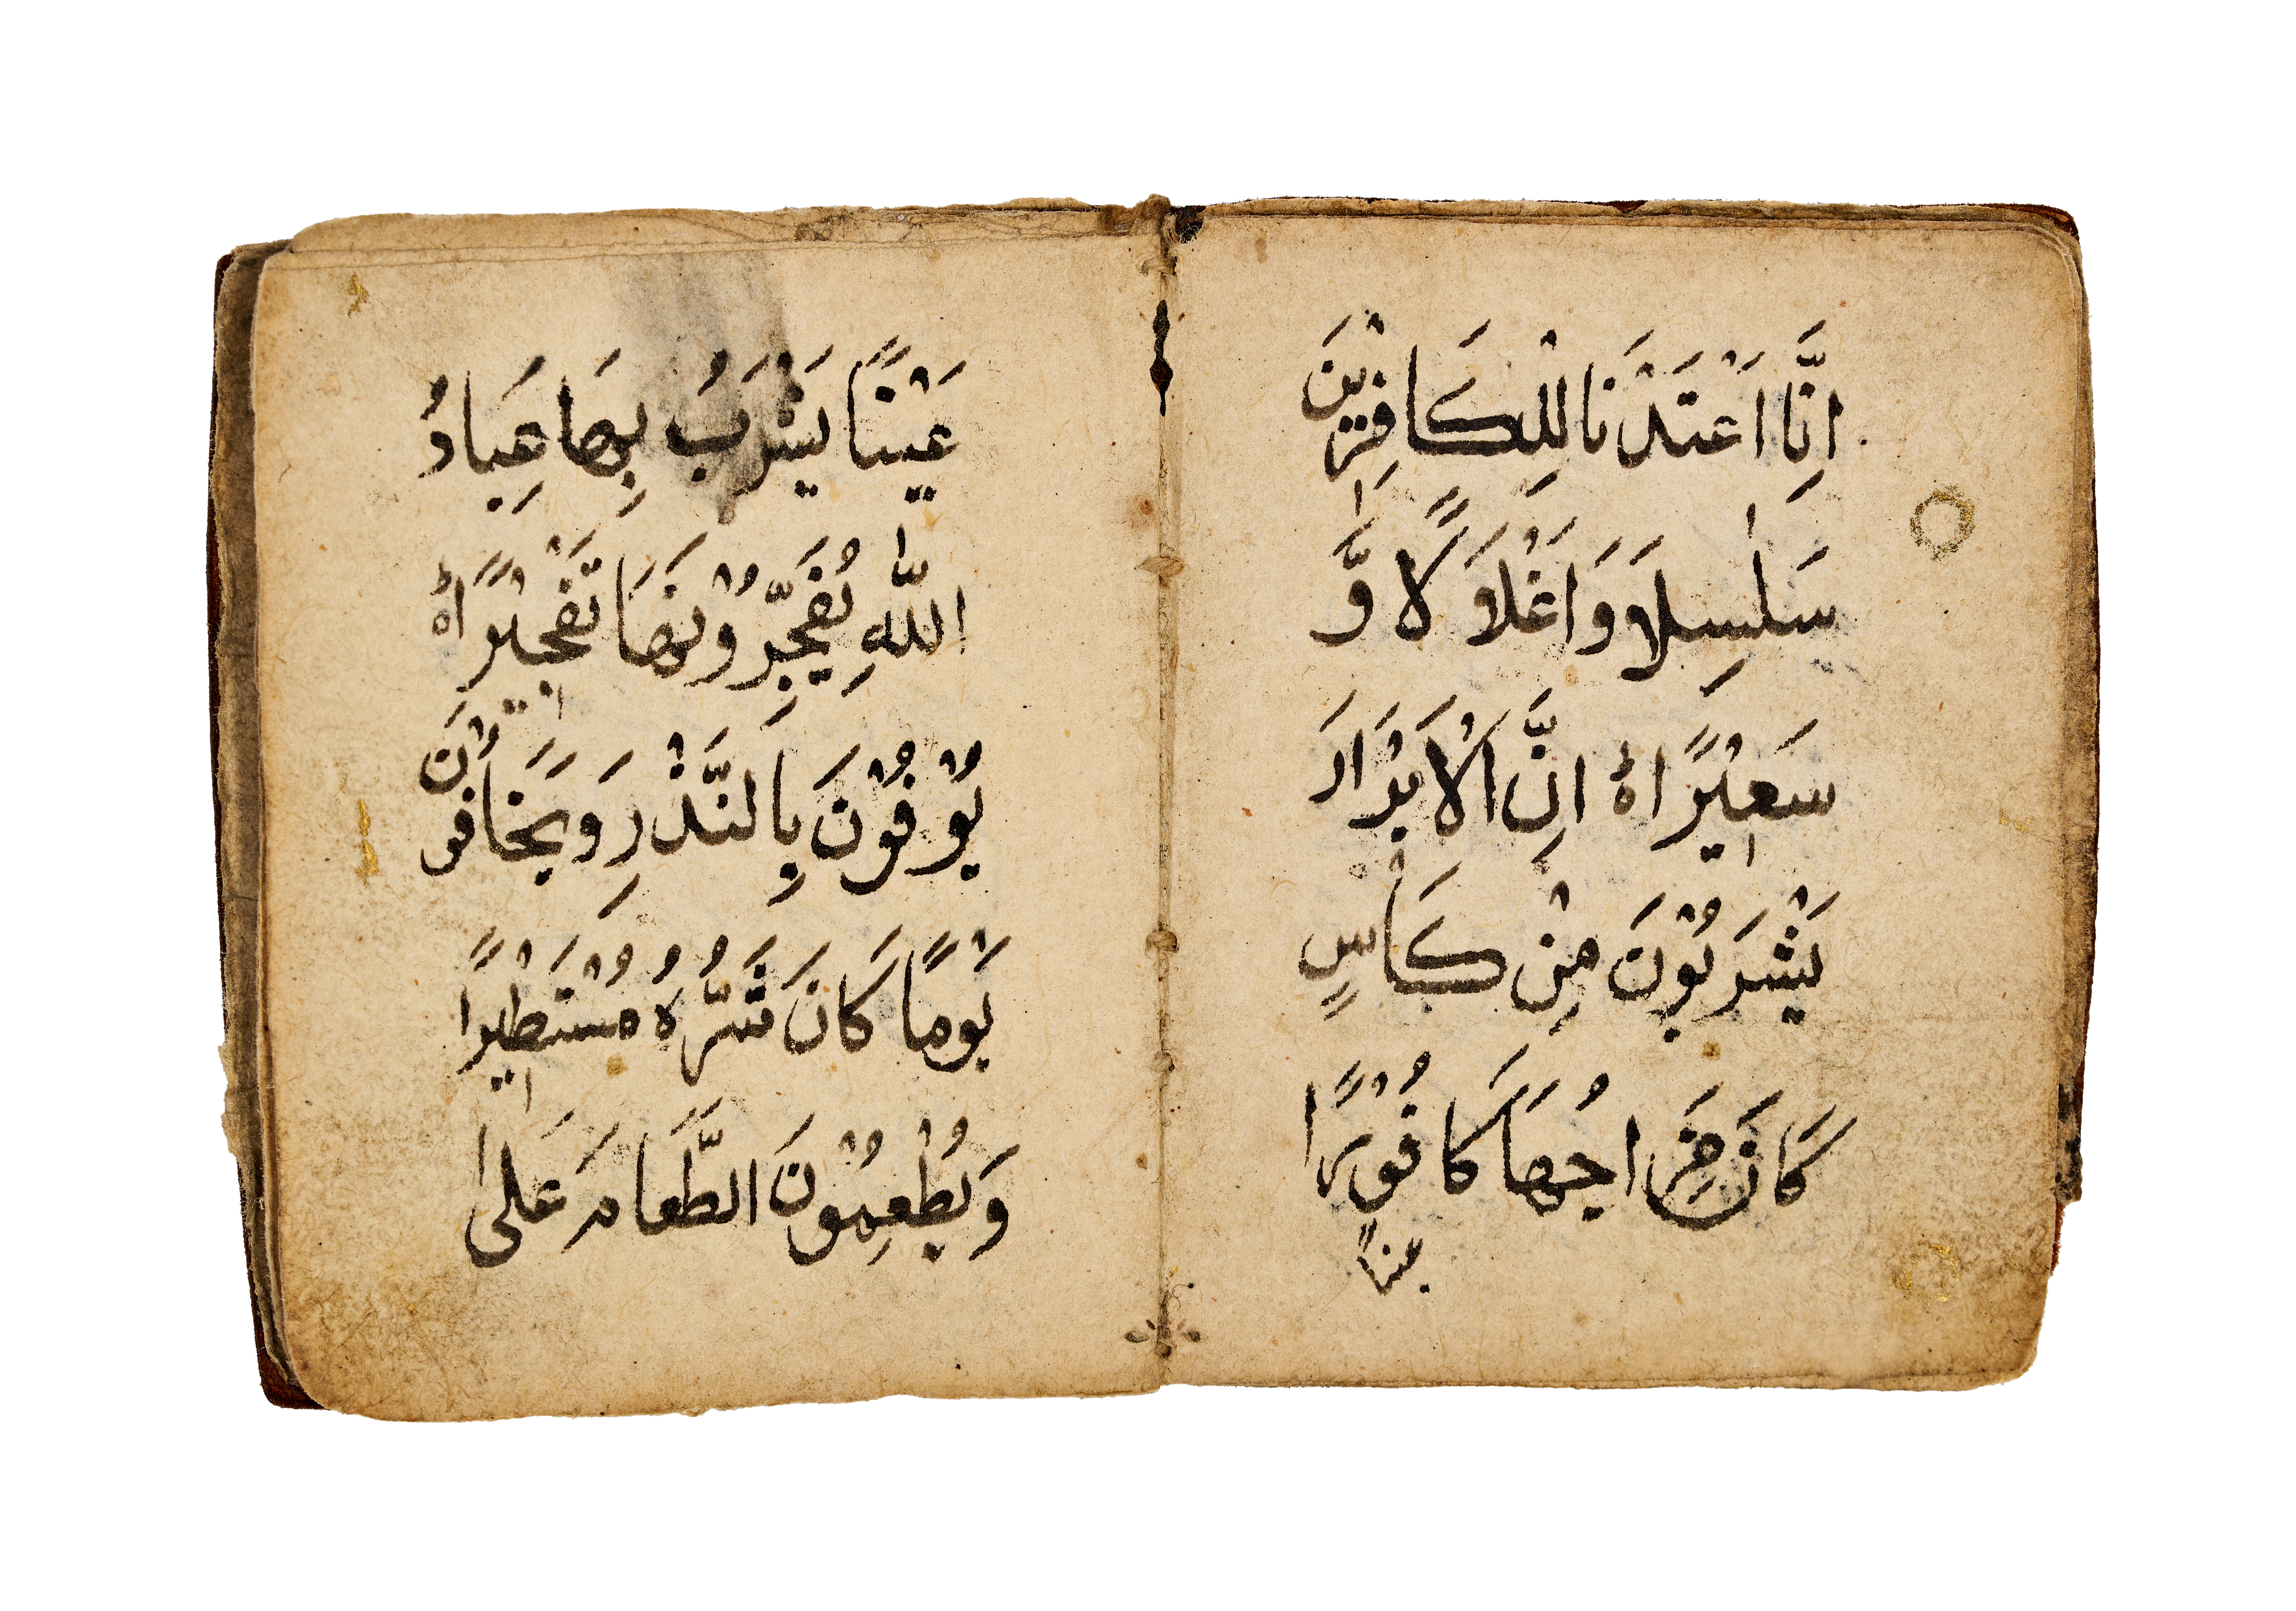 اِنَّا اَعْتَدْنَا لِلْكَافِرِيْنَ
سَلٰسِلَا۟ وَاَغْلَالًا وَّ
سَعِيْرًا ۝ اِنَّ الْاَبْرَارَ
يَشْرَبُوْنَ مِنْ كَأْسٍ
كَانَ مِزَاجُهَا كَافُوْرًا
عينًا
عَيْنًا يَشْرَبُ بِهَا عِبَادُ
اللّٰهِ يُفَجِّرُوْنَهَا تَفْجِيْرًا ۝
يُوْفُوْنَ بِالنَّذْرِ وَيَخَافُوْنَ
يَوْمًا كَانَ شَرُّهُ مُسْتَطِيْرًا
وَيُطْعِمُوْنَ الطَّعَامَ عَلٰى